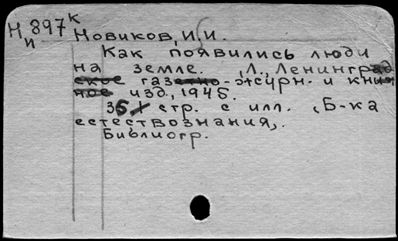 Н и 397к
Новиков, И.И.
Как появились люди
на земле. Л., Ленинград
ское газетно-журн. и книж
ное изд., 1945.
35 стр. с илл. (Б-ка
естествознания).
Библиогр.